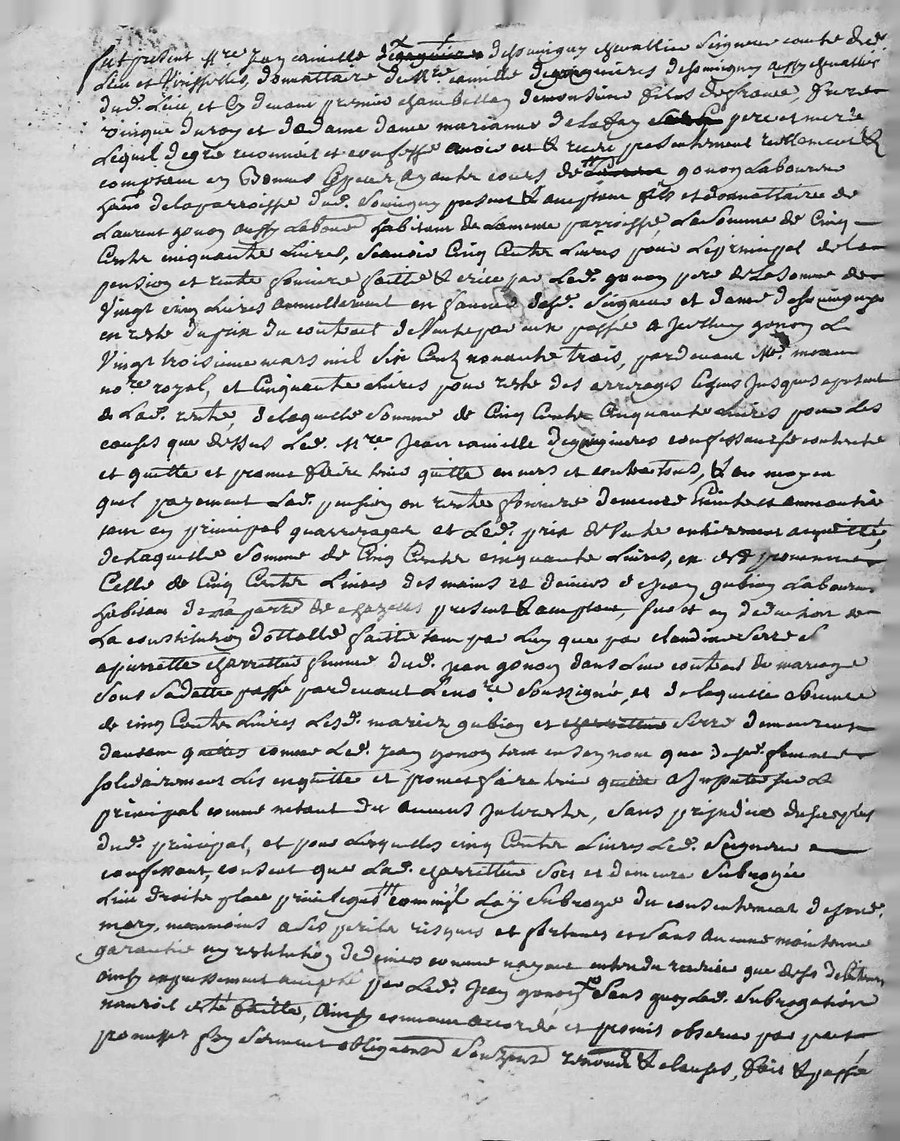 fut present Mre Jean camille de souvigny chevallier Seigneur comte dud.
Luc et donnattaire de Mre camille de souvigny aussy chevallier
dud. Luc, et Cy devant premier chambellan de monsieur fils de france, frere
unique du roy et de dame dame marianne de pere et mere
Lequel de gré reconnoit et confesse avoir eu & receu presentement reellement &
comptant en Bonnes Especes ayants cours de gonon Laboureur
habt de la parroisse dud. Souvigny present & acceptant fils et donnattaire de
Laurent gonon aussy Laboureur habitant de La meme parroisse, La Somme de Cinq
Cents cinquante Livres, Scavoir Cinq Cents Livres pour Le principal de la
pension et rente fonciere faitte & créée par Led. gonon pere de La Somme de
Vingt cinq Livres annuellement en faveur desd. Seigneur et dame de souvigny
en reste du prix du contract de Vente par eux passée a gonon Le
Vingt troisieme mars mil Six Cents nonante trois, pardevant Me.
nore royal, et Cinquante Livres pour reste des arrerages Echus Jusques a present
de Lad. rente, de laquelle Somme de Cinq Cents Cinquante Livres pour Les
causes que dessus Led. Mre Jean camille confessant se contente
et quitte et promet faire tenir quitte envers et contre tous, & au moyen
quel payement Lad. pension ou rente fonciere demeure Eteinte et
tant en principal qu'arrerages et Led. prix de Vente entierement acquitté,
de Laquelle Somme de Cinq Cents cinquante Livres, en est provenue
Celle de Cinq Cents Livres des mains et deniers de Jean gubian Laboureur
habitant de La parre de chazelles present & acceptant, et en deduction de
La constitution dottalle faitte tant par Luy que par claudine Serre
a pierrette charrettier femme dud. Jean gonon dans Leur contract de mariage
Sous Sa datte passé pardevant Le nore Soussigné, et de laquelle Somme
de cinq Cents Livres Lesd. mariez gubian et Serre demeurent
dautant quittes comme Led. Jean gonon tant en Son nom que de sad. femme
solidairement Les en quitte et promet faire tenir quitte a Imputer sur Le
principal comme netant du aucuns Interests, Sans prejudice du surplus
dud. principal, et pour Lesquelles cinq Cents Livres Led. Seigneur
confessant, consent que Lad. charrettier Soit et demeure Subrogée
Lieu droits place privileges comm'il La Subroge du consentement de sond.
mary, neanmoins a Ses perils risques et fortunes et Sans aucune maintenue
garantie ny restitution de deniers comme nayant entendu recevoir que de Ses debiteurs
ainsy expressement accepté par Led. Jean gonon Sans quoy Lad. Subrogation
nauroit eté faitte, Ainsy convenu accordé et promis observer par parties
promesses foy Serment obligeant Soumet renonce & clauses, fait & passé